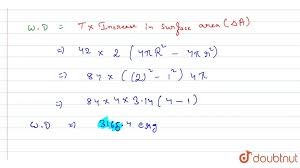 W.D = T × Increase in surface area (ΔA)
⇒) 42 × 2 (4πR² - 4πr²)
⇒) 84 × ((2)² - 1²) 4π
⇒) 84 × 4 × 3.14 (4 - 1)
W.D ⇒) 3165.4 erg
doubtnut